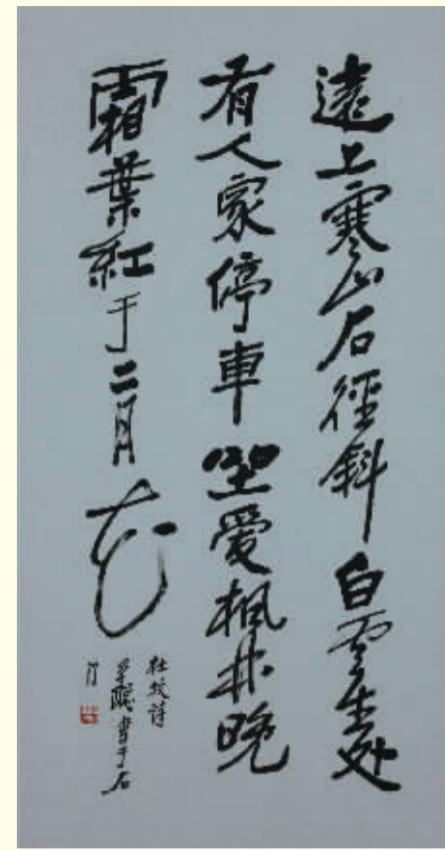 遠上寒山石徑斜白雲生处
有人家停車坐愛楓林晚
霜葉紅于二月花
杜牧詩
書于石